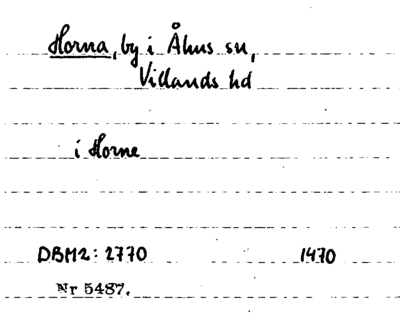 Horna, by i Åhus sn,
Villands hd
i Horne
DBM2: 2770 1470
Nr 5487.